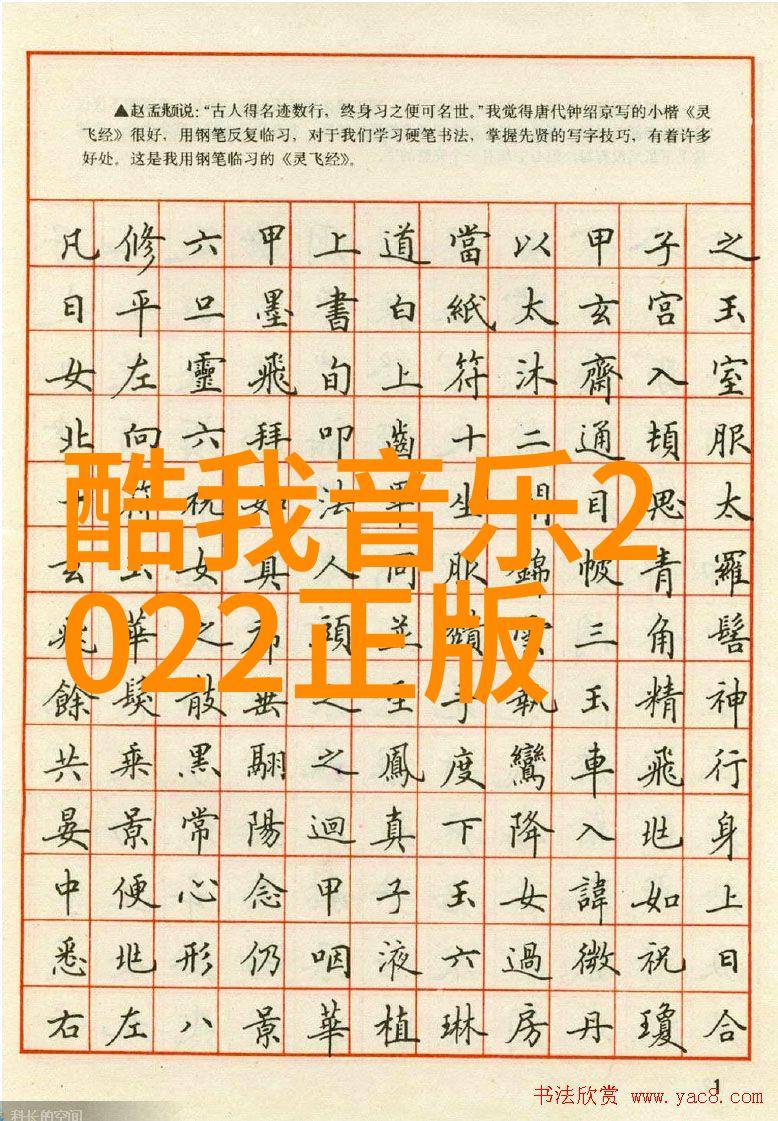 ▲赵孟頫说：“古人得名迹数行，终身习之便可名世。”我觉得唐代钟绍京写的小楷《灵
飞经》很好，用钢笔反复临习，对于我们学习硬笔书法，掌握先贤的写字技巧，有着许多
好处。这是我用钢笔临习的《灵飞经》。
凡修六甲上道當以甲子之
日平旦墨書白紙太玄宮玉
女左靈飛旬上符沐齋入室
北向六拜叩齒十二通頓服
酷我音乐2
十符祝如法畢坐閉目思太
玄玉女真人同服錦帔青羅
022正版
飛華之帬頭並頹雲三角髻
餘髮散垂之至手執玉精神
共乘黑翮之鳳度鸞車飛行
晏景常陽迴真下降入兆身
中便心念甲子玉女諱如上
悉兆形仍咽液六過微祝曰
右左八景華植琳房丹瓊合
1
书法欣赏 www.yac8.com
科长的空间